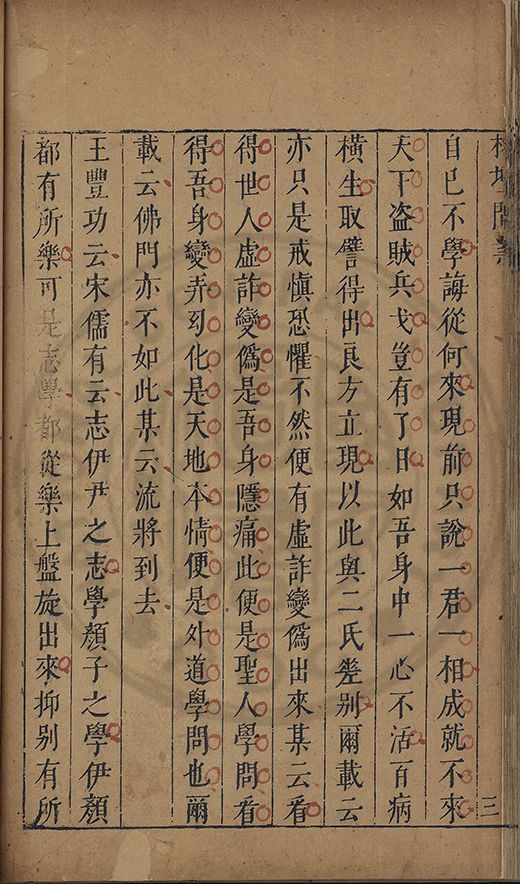 榕壇問業　三
自已不學誨從何來現前只說一君一相成就不來
天下盜賊兵戈豈有了日如吾身中一心不活百病
橫生取譬得出良方立現以此與二氏差別爾載云
亦只是戒慎恐懼不然便有虛詐變僞出來某云看
得世人虛詐變僞是吾身隱痛此便是聖人學問看
得吾身變弄幻化是天地本情便是外道學問也爾
載云佛門亦不如此某云流將到去
王豐功云宋儒有云志伊尹之志學顏子之學伊顏
都有所樂可是志學都從樂上盤旋出來抑別有所